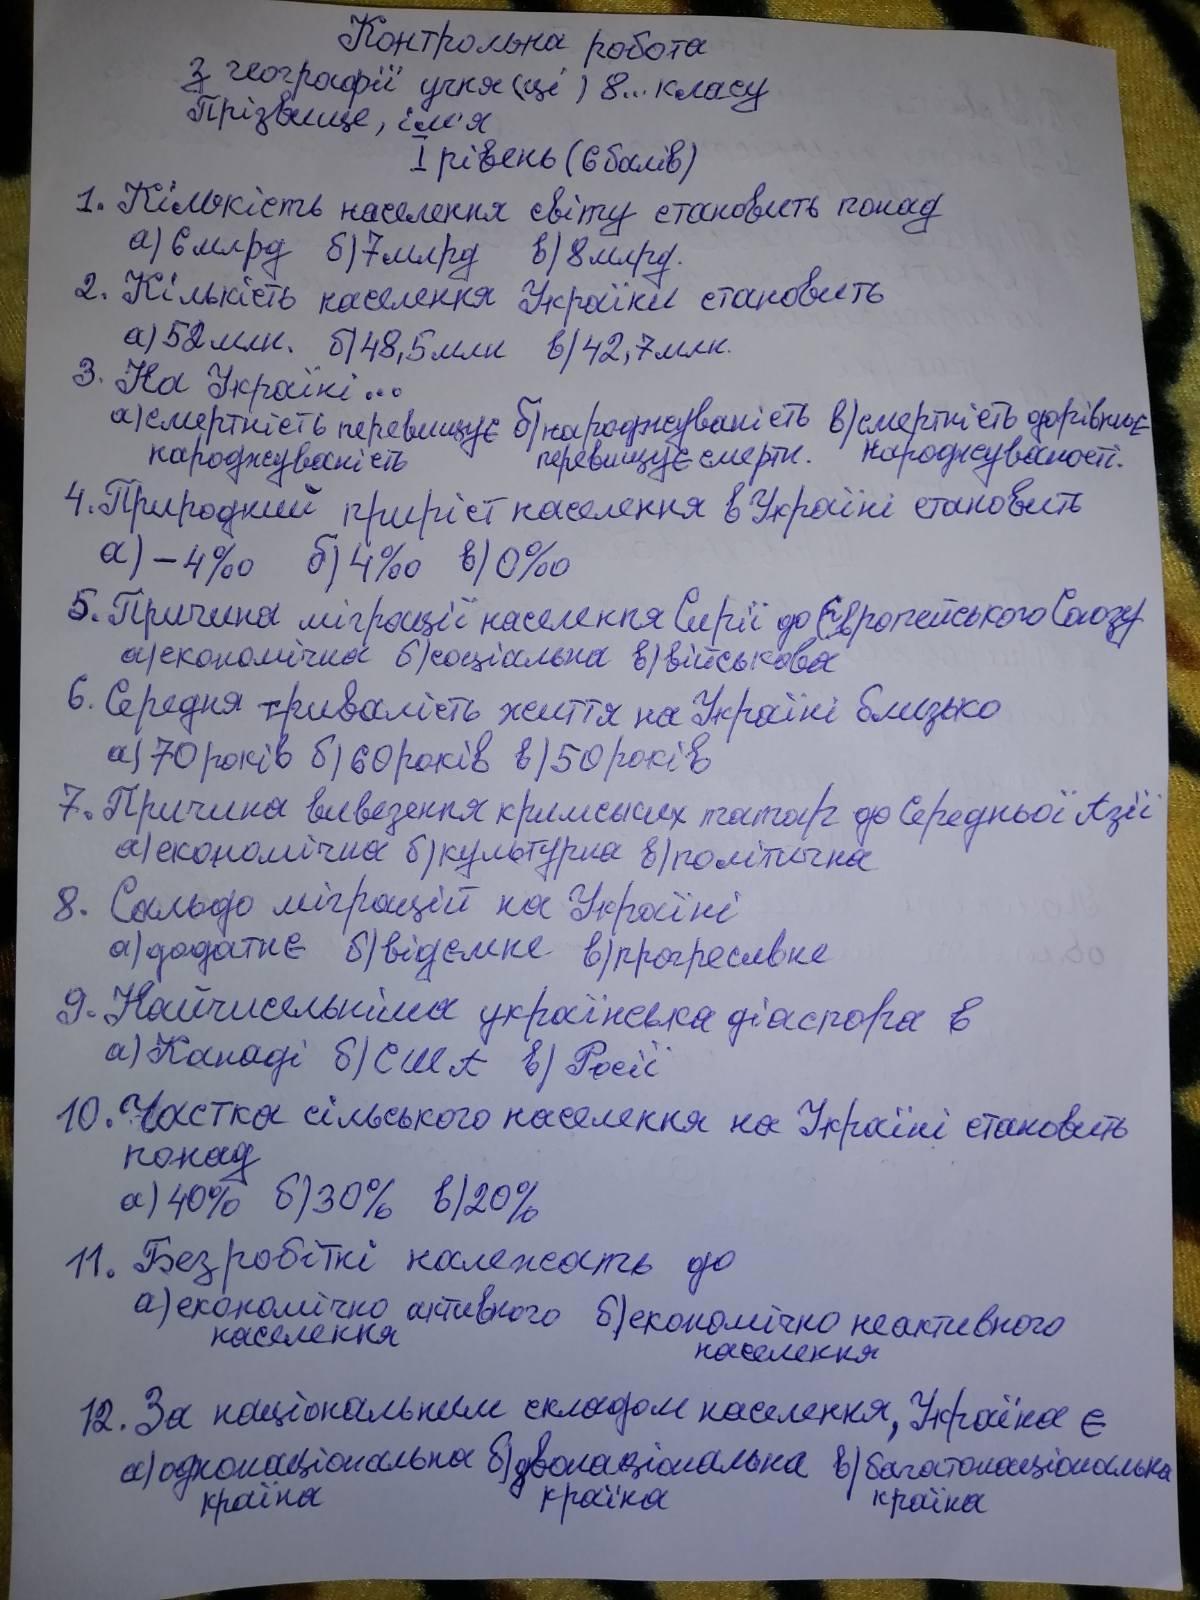 Контрольна робота
З географії учня(ці) 8... класу
Прізвище, ім'я
І рівень (6 балів)
1. Кількість населення світу становить понад
а) 6 млрд б) 7 млрд в) 8 млрд.
2. Кількість населення України становить
а) 52 млн. б) 48,5 млн в) 42,7 млн.
3. На Україні...
а) смертність перевищує б) народжуваність в) смертність дорівнює
народжуваність перевищує смертн. народжуваності.
4. Природний приріст населення в Україні становить
а) – 4‰ б) 4‰ в) 0‰
5. Причина міграції населення Сирії до Європейського Союзу
а) економічна б) соціальна в) військова
6. Середня тривалість життя на Україні близько
а) 70 років б) 60 років в) 50 років
7. Причина вивезення кримських татар до Середньої Азії
а) економічна б) культурна в) політична
8. Сальдо міграцій на Україні
а) додатнє б) відємне в) прогресивне
9. Найчисельніша українська діаспора в
а) Канаді б) США в) Росії
10. Частка сільського населення на Україні становить
понад
а) 40% б) 30% в) 20%
11. Безробітні належать до
а) економічно активного б) економічно неактивного
населення населення
12. За національним складом населення, Україна є
а) однонаціональна б) двонаціональна в) багатонаціональна
країна країна країна